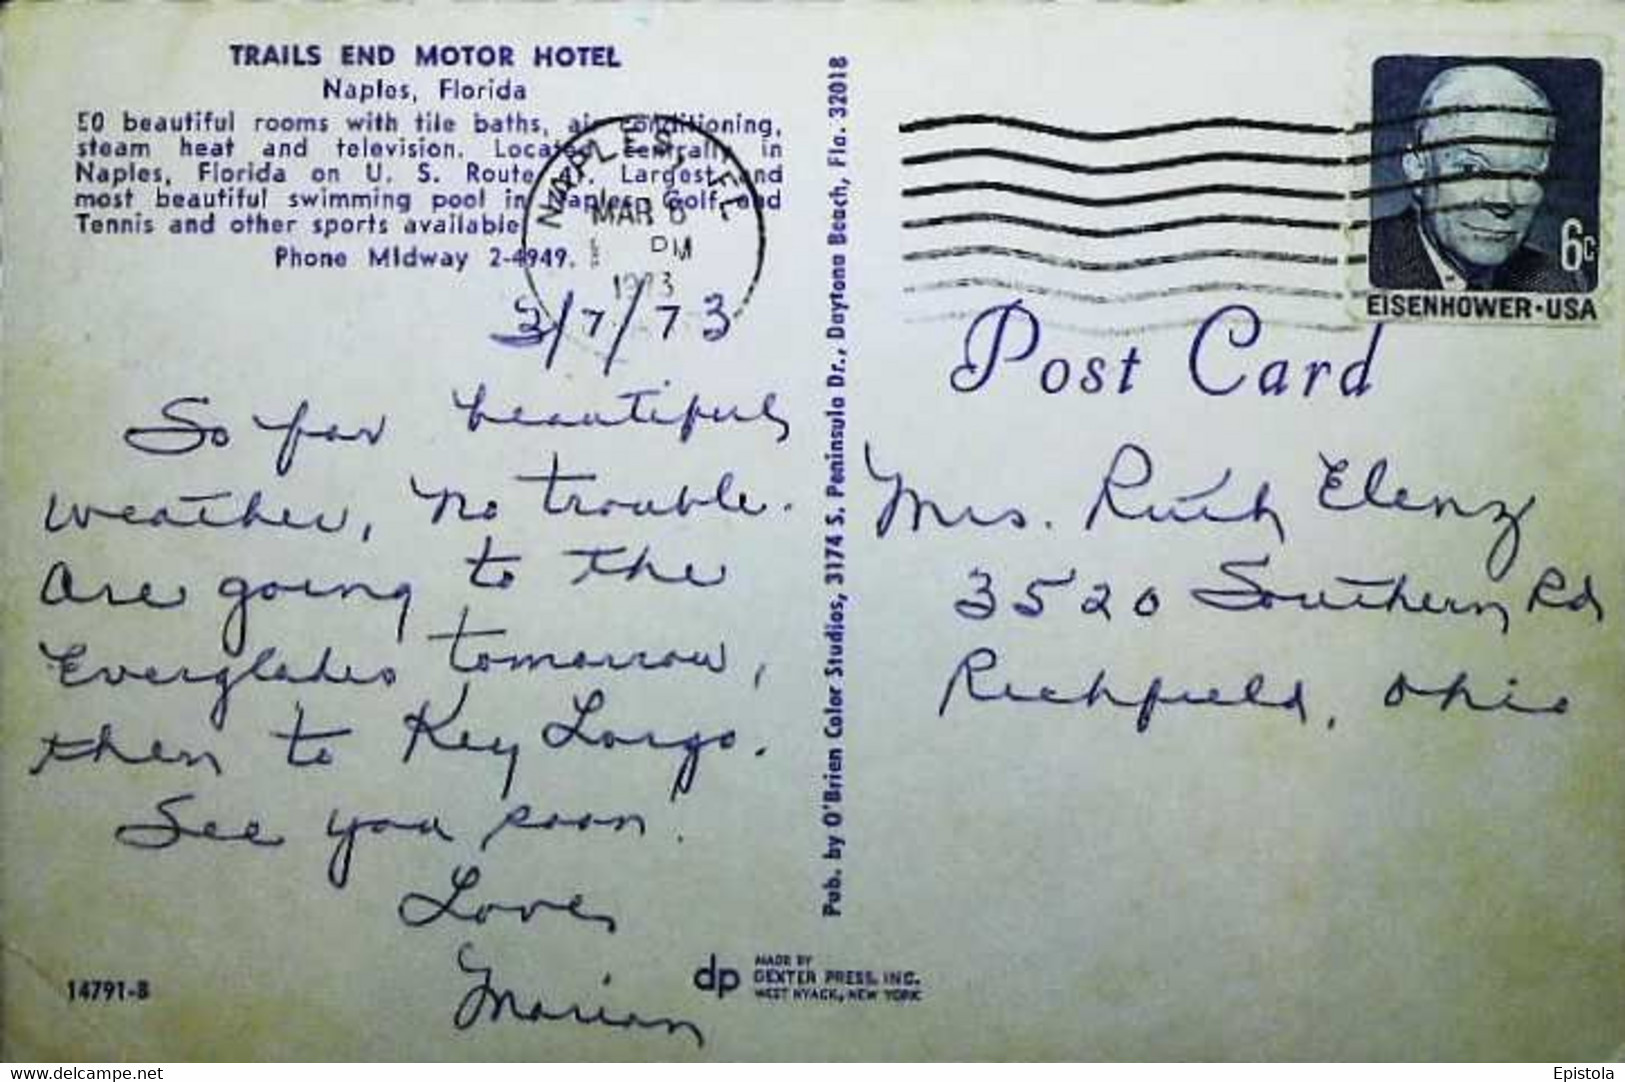 TRAILS END MOTOR HOTEL
Naples, Florida
50 beautiful rooms with tile baths, air conditioning,
steam heat and television. Located centrally in
Naples, Florida on U. S. Route 41. Largest and
most beautiful swimming pool in Naples. Golf and
Tennis and other sports available.
Phone Midway 2-4949.
MAR 6
PM
1973
3/7/73
So far beautiful
weather, no trouble.
Are going to the
Everglades tomorrow,
then to Key Largo.
See you soon.
Love,
Marian
14791-B
Pub. by O'Brien Color Studios, 3174 S. Peninsula Dr., Daytona Beach, Fla. 32018
dp
MADE BY
DEXTER PRESS, INC.
WEST NYACK, NEW YORK
6c
EISENHOWER·USA
Post Card
Mrs. Ruth Elenz
3520 Southern Rd
Richfield, Ohio
delcampe.net
Epistola